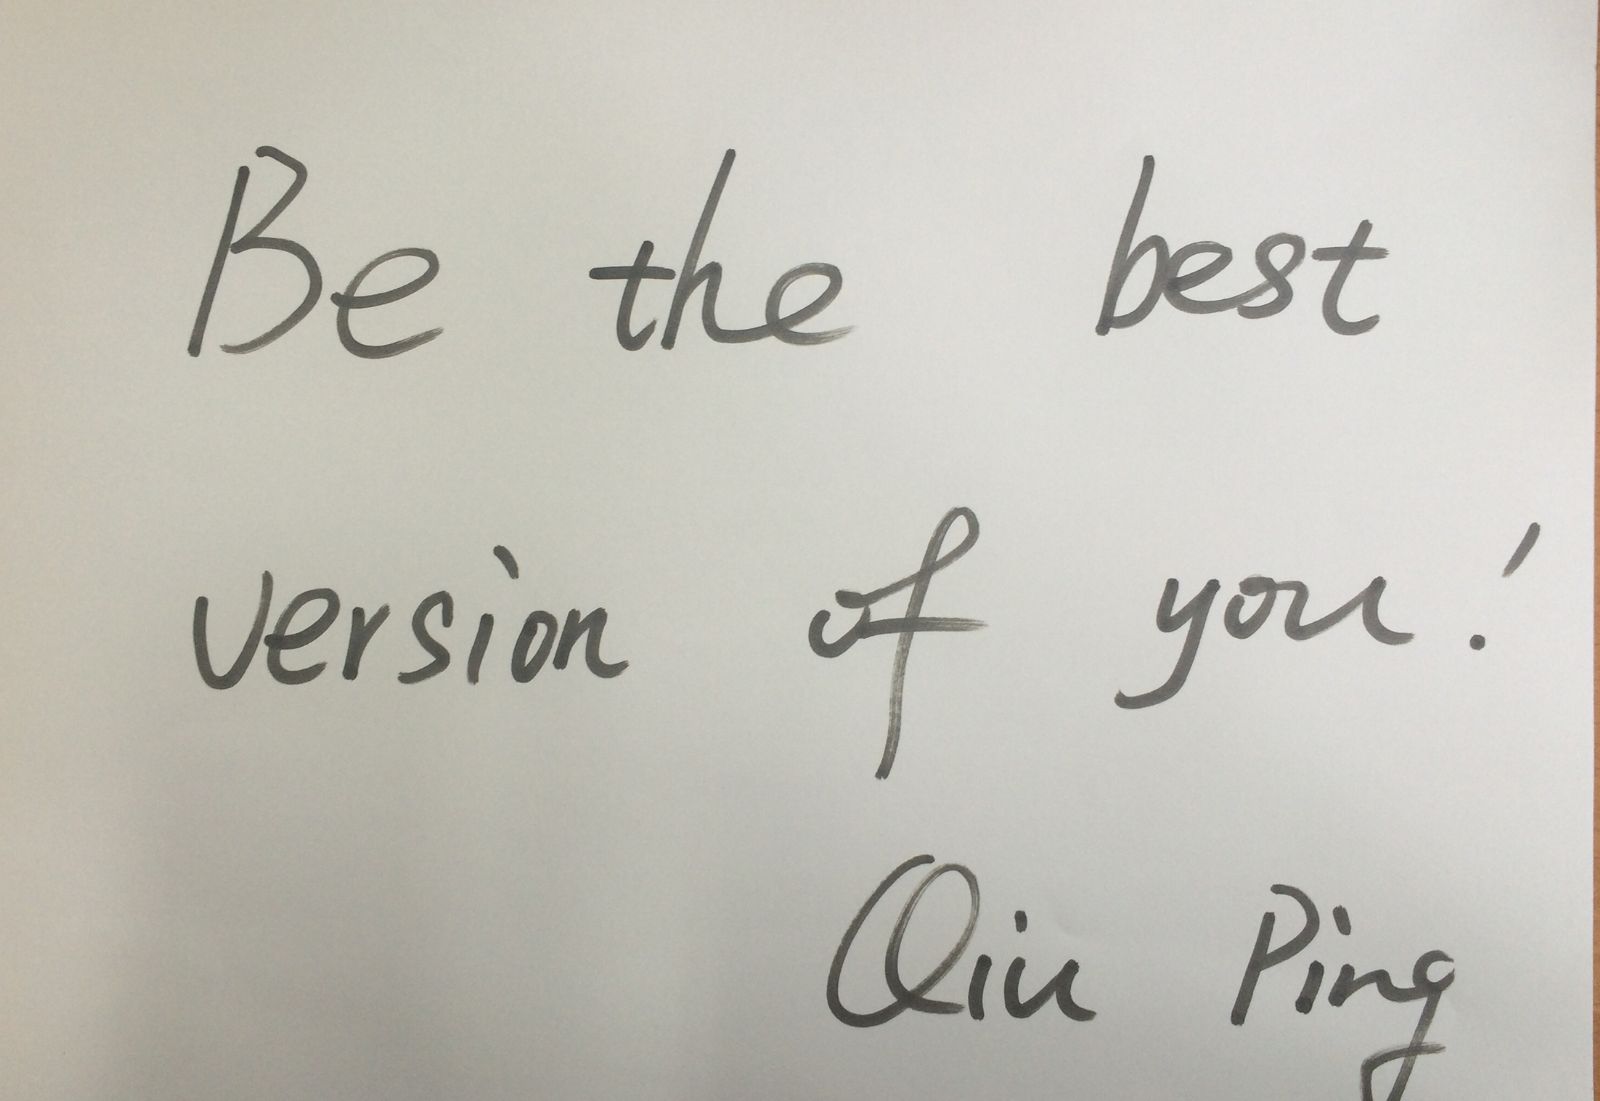 Be the best
version of you!
Qiu Ping